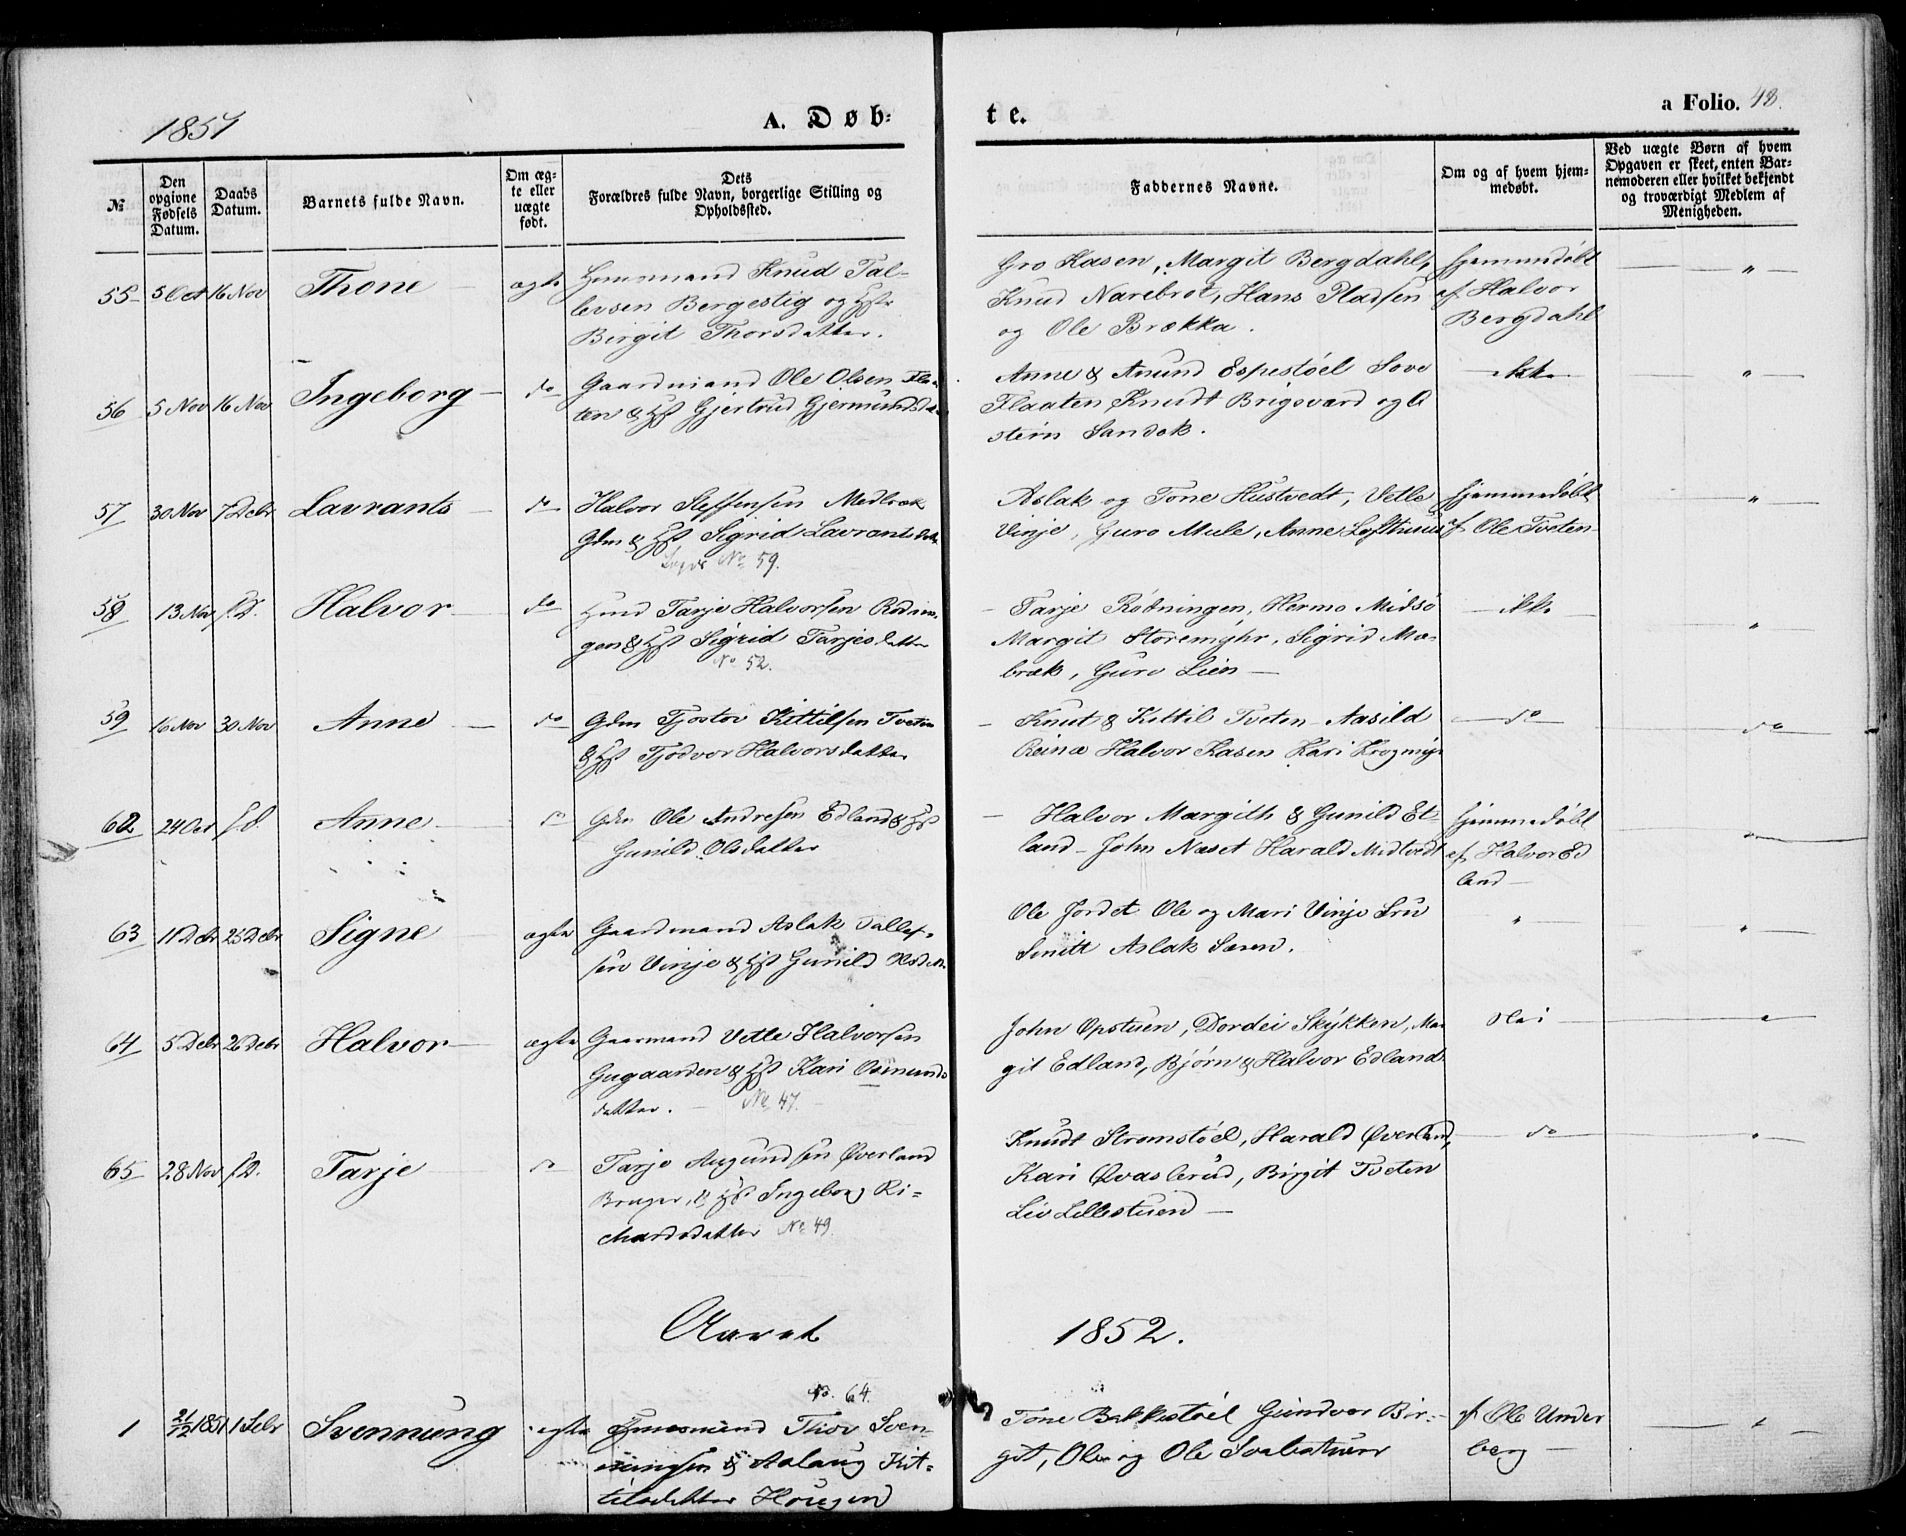 1851
A. Døb-
te.
a Folio. 48.
№
Den opgivne Fødsels Datum.
Daabs Datum.
Barnets fulde Navn.
Om ægte eller uægte født.
Dets Forældres fulde Navn, borgerlige Stilling og Opholdssted.
Faddernes Navne.
Om og af hvem hjemmedøbt.
Ved uægte Børn af hvem Opgaven er skeet, enten Barnemoderen eller hvilket bekjendt og troværdigt Medlem af Menigheden.
55 5 Oct 16 Nov Thone ægte Huusmand Knud Tal-
levsen Bergestig og Hstr
Birgit Thorsdatter.
Gro Kasen, Margit Bergdahl,
Knud Narebrot, Hans Pladsen
og Ole Brækka.
hjemmedøbt
af Halvor
Bergdahl
"
56 5 Nov 16 Nov Ingeborg do Gaardmand Ole Olsen Flaa-
ten & Hst Gjertrud Gjermundsd
Anne & Anund Espestøel Sove
Flaaten Knudt Brigsværd og O
stein Sandok.
ikke
"
57 30 Nov 7 Debr Lavrants do Halvor Steffensen Medbræk
Gdm & Hst Sigrid Lavrantsdatt
No 59.
Aslak og Tone Hustvedt, Vetle
Vinje, Guro Mule, Anne Lofthuus
hjemmedøbt
af Ole Tveten
"
58 13 Nov f.D. Halvor do Hmd Tarje Halvorsen Rønin-
gen & Hst Sigrid Tarjesdatter
No 52.
Tarje Røbningen, Hermo Midsø
Margit Storemyhr, Sigrid Mæ-
bræk, Guro Lien
ikke
"
59 16 Nov 30 Nov Anne do Gdm Tjostov Kittilsen Tveten
& Hst Tjodvor Halvorsdatter
Knut & Kittil Tveten Aasild
Reinæ Halvor Kasen Kari Krogmyr
do
do
62 24 Oct f.d. Anne do Gdm Ole Andresen Edland & Hst
Gunild Olsdatter
Halvor Margith & Gunild Et-
land - John Næset Harald Midtvedt
hjemmedøbt
af Halvor Ed
land
"
63 11 Debr 25 Debr Signe ægte Gaardmand Aslak Tallef-
sen Vinje & Hst Gunild Olsdtr.
Ole Jordet Ole og Mari Vinje Gru
Smitt Aslak Søren.
"
"
64 5 Debr 26 Debr Halvor ægte Gaarmand Vetle Halvorsen
Gugaarden & Hst Kari Osmunds
datter. No 47.
John Opstuen, Dordei Skykken, Mar
git Edland, Bjørn & Halvor Edland
Nei
"
65 28 Nov f.D. Tarje do Tarje Augundsen Øverland
Bruger, & Hst Ingeborg Ri-
chardsdatter No 49.
Knudt Strømstøel, Harald Øverland,
Kari Qvaslerud, Birgit Tveten
Liv Lillestuen
do
"
Aaret 1852.
No. 64.
1 21/12 1851 1 Febr Svennung ægte Huusmand Thor Sven-
ningsen & Aslaug Kit-
telsdatter Hougen
Tone Bakkestøel Gundvor Bir-
git, Olav og Ole Svalastuen
af Ole Under
berg
"